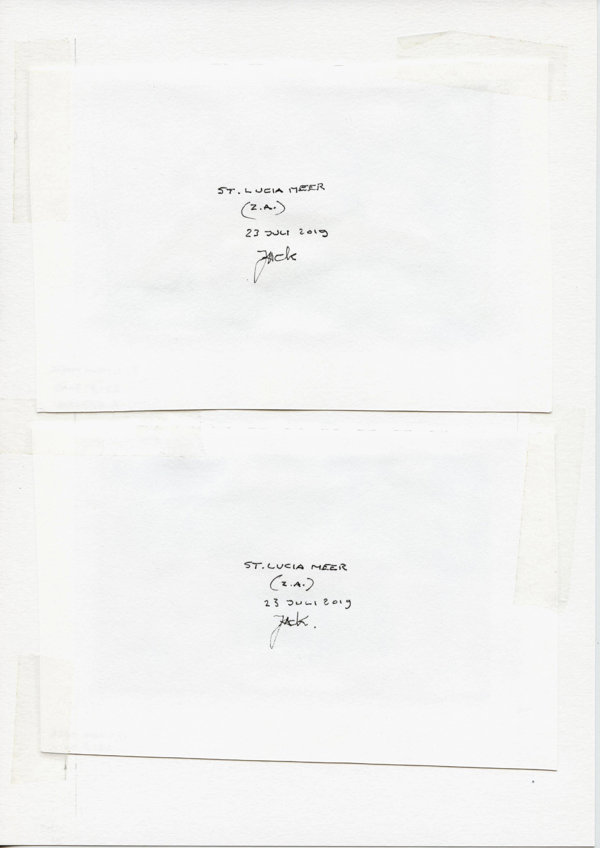 ST. LUCIA MEER
(Z.A.)
23 JULI 2019
Jack
ST. LUCIA MEER
(Z.A.)
23 JULI 2019
Jack.